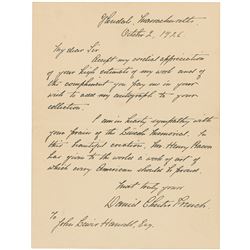 Glendale, Massachusetts
October 2, 1926
My dear Sir
Accept my cordial appreciation
of your high estimate of my work and of
the compliment you pay me in your
wish to add my autograph to your
collection.
I am in hearty sympathy with
your opinion of the Lincoln Memorial. In
this beautiful creation, Mr. Henry Bacon
has given to the world a work of art of
which every American should be proud.
Most truly yours
Daniel Chester French
To
John Lewis Esq.